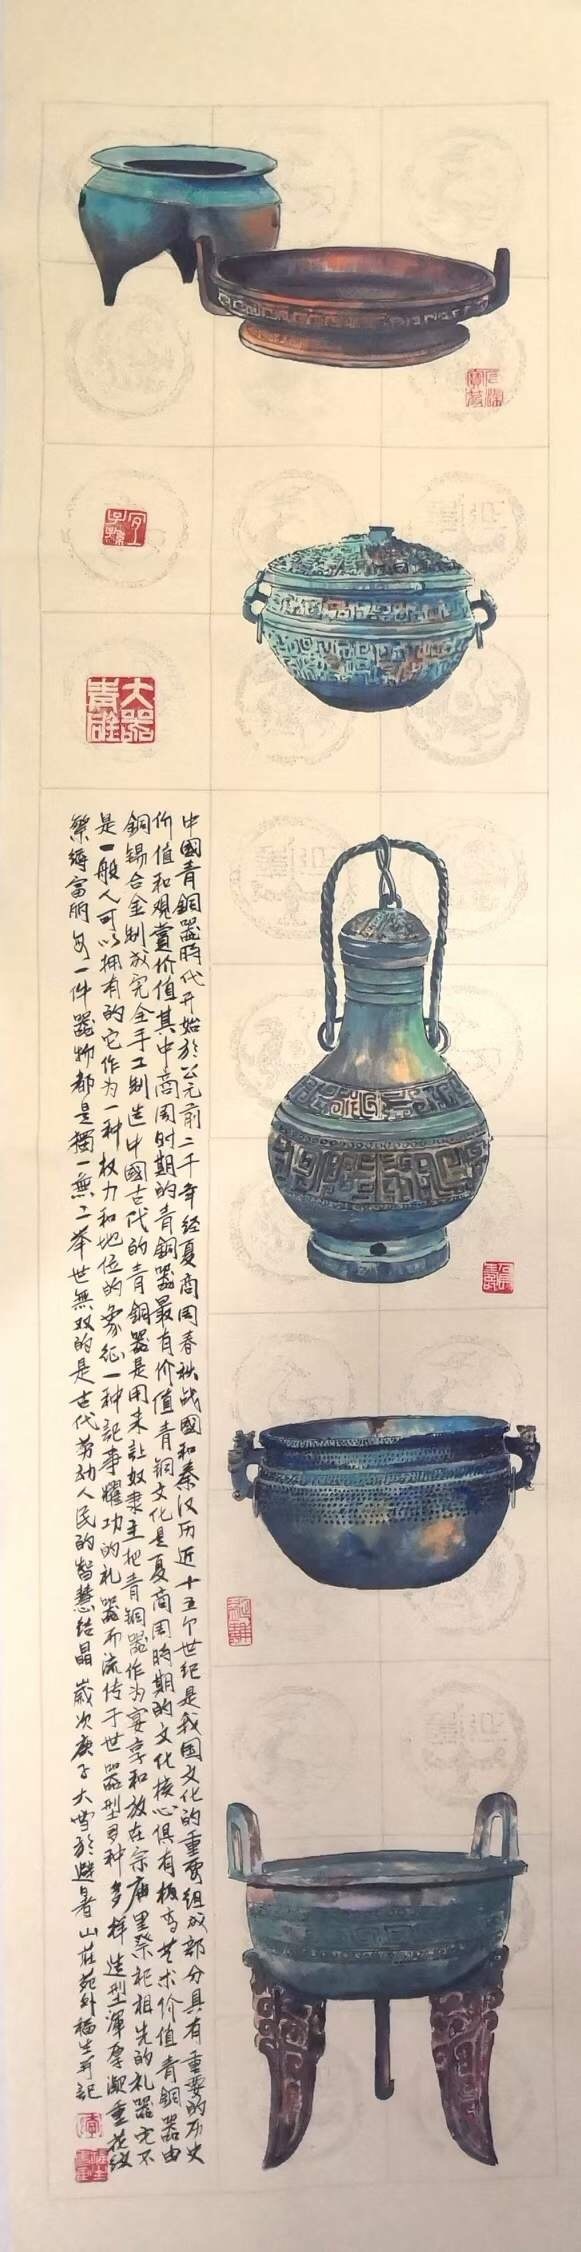 大器
青雄
中國青銅器時代开始於公元前二千年经夏商周春秋战國和秦汉历近十五个世纪是我国文化的重要组成部分具有重要的历史
价值和观赏价值其中商周时期的青銅器最有价值青铜文化是夏商周时期的文化核心俱有极高艺术价值青銅器由
銅锡合金制成完全手工制造中國古代的青銅器是用来让奴隶主把青銅器作为宴享和放在宗庙里祭祀祖先的礼器它不
是一般人可以拥有的它作为一种权力和地位的象征一种記事耀功的礼器而流传于世器型多种多样造型渾厚凝重花纹
繁缛富丽每一件器物都是獨一無二举世無双的是古代劳动人民的智慧结晶 歲次庚子大雪於避暑山莊苑外福生并記